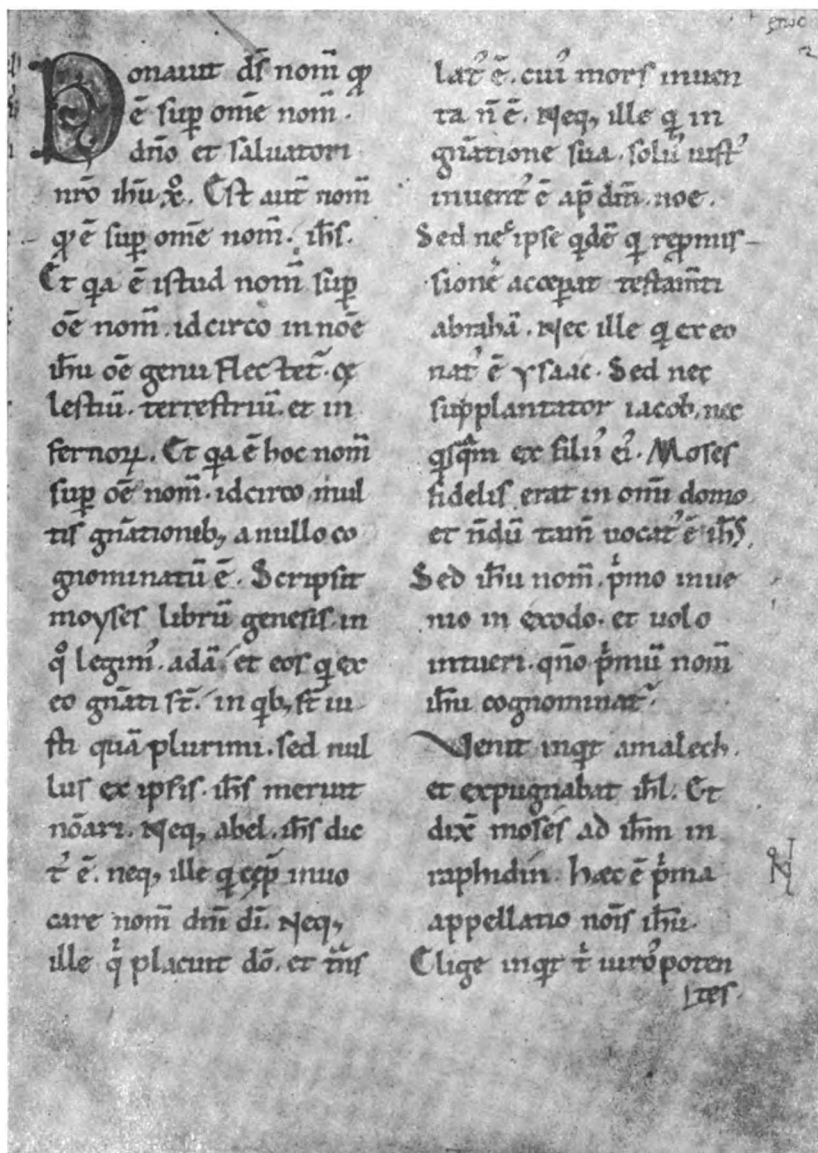 Donauit d̄s nom̄ qđ
ē sup̱ om̄e nom̄.
dn̄o et saluatori
nr̄o ih̄u xo. Est aut̄ nom̄
qđ ē sup̱ om̄e nom̄. ih̄s.
Et qa ē istud nom̄ sup̱
oē nom̄. idcirco in noīe
ih̄u oē genu flectet̉. cę
lestiū. terrestriū. et in
fernoꝝ. Et qa ē hoc nom̄
sup̱ oē nom̄. idcirco mul
tis gn̄ationib; a nullo co
gnominatū ē. Scripsit
moyses librū genesis. in
qo legim᾿. adā. et eos q ex
eo gn̄ati st̄. in qb; st̄ iu
sti quā plurimi. sed nul
lus ex ipsis. ih̄s meruit
nōari. Neq; abel. ih̄s dic
t᾿ ē. neq; ille q cep̄ inuo
care nom̄ dn̄i dī. Neq;
ille qi placuit dō. et tn̄s
lat᾿ ē. cui᾿ mors inuen
ta n̄ ē. Neq; ille q in
gn̄atione sua. solu᾿ iust᾿
inuent᾿ ē ap̄ dm̄. noe.
Sed nec ipse qdē q rep̱mis-
sionē accep̱at testam̄ti
abrahā. Nec ille q ex eo
nat᾿ ē ysaac. Sed nec
supplantator iacob. nec
qsqm̄ ex filii᾿ ei᾿. Moses
fidelis erat in omī domo
et n̄dū tam̄ uocat᾿ ē ih̄s.
Sed ih̄u nom̄. pimo inue
nio in exodo. et uolo
intueri. qn̄o pimū nom̄
ih̄u cognominat̉.
Uenit inqt amalech.
et expugnabat ih̄l. Et
dix̄ moses ad ih̄m in
raphidin. hæc ē pima
appellatio noīs ih̄u.
Elige inqt ti uiro᾿ poten
tes.